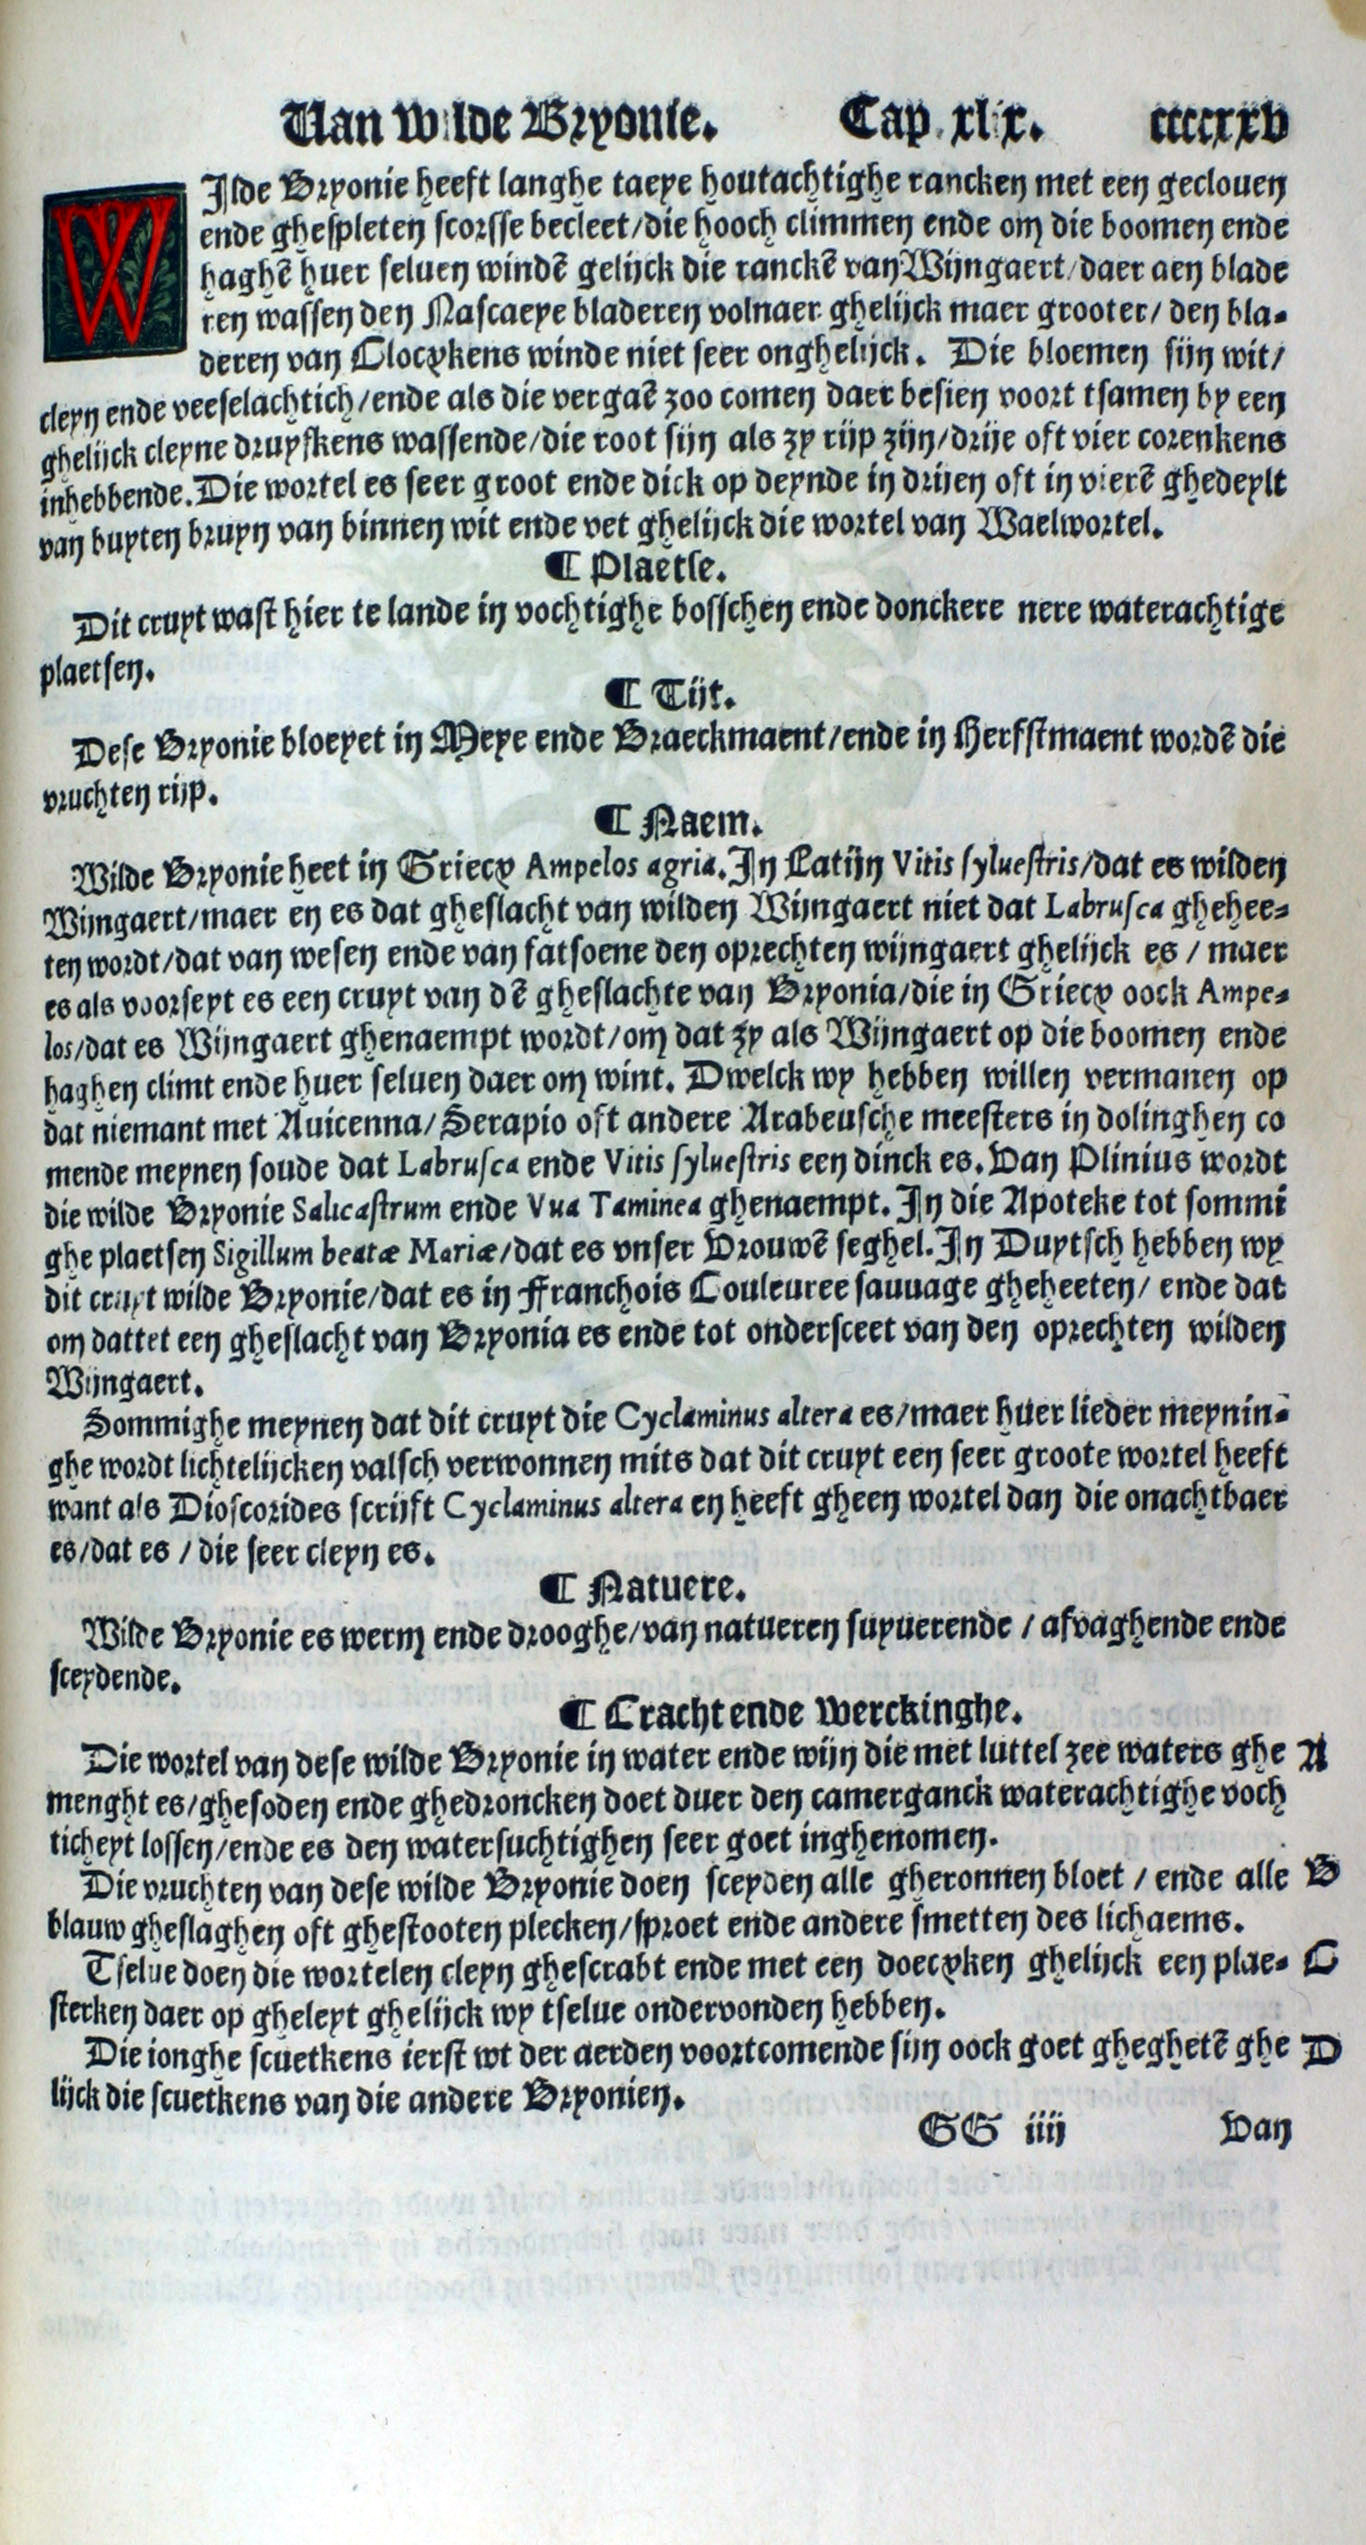 Van Wilde Bryonie. Cap. xlix. ccccxxv
WIlde Bryonie heeft langhe taeye houtachtighe rancken met een geclouen
ende ghespleten scorsse becleet/die hooch climmen ende om die boomen ende
haghē huer seluen windē gelijck die ranckē van Wijngaert/daer aen blade
ren wassen den Nascaeye bladeren volnaer ghelijck maer grooter/ den bla-
deren van Clocxkens winde niet seer onghelijck. Die bloemen sijn wit/
cleyn ende veeselachtich/ende als die vergaē zoo comen daer besien voort tsamen by een
ghelijck cleyne druyfkens wassende/die root sijn als zy rijp zijn/drije oft vier corenkens
inhebbende. Die wortel es seer groot ende dick op deynde in drijen oft in vierē ghedeylt
van buyten bruyn van binnen wit ende vet ghelijck die wortel van Waelwortel.
¶ Plaetse.
Dit cruyt wast hier te lande in vochtighe bosschen ende donckere nere waterachtige
plaetsen.
¶ Tijt.
Dese Bryonie bloeyet in Meye ende Braeckmaent/ende in Herfstmaent wordē die
vruchten rijp.
¶ Naem.
Wilde Bryonie heet in Griecx Ampelos agria. In Latijn Vitis syluestris/dat es wilden
Wijngaert/maer en es dat gheslacht van wilden Wijngaert niet dat Labrusca ghehee-
ten wordt/dat van wesen ende van fatsoene den oprechten wijngaert ghelijck es / maer
es als voorseyt es een cruyt van dē gheslachte van Bryonia/die in Griecx oock Ampe-
los/dat es Wijngaert ghenaempt wordt/om dat zy als Wijngaert op die boomen ende
haghen climt ende huer seluen daer om wint. Dwelck wy hebben willen vermanen op
dat niemant met Auicenna/Serapio oft andere Arabeusche meesters in dolinghen co
mende meynen soude dat Labrusca ende Vitis syluestris een dinck es. Van Plinius wordt
die wilde Bryonie Salicastrum ende Vua Taminea ghenaempt. In die Apoteke tot sommi
ghe plaetsen Sigillum beatæ Mariæ/dat es vnser Vrouwē seghel. In Duytsch hebben wy
dit cruyt wilde Bryonie/dat es in Franchois Couleuree sauuage gheheeten/ ende dat
om dattet een gheslacht van Bryonia es ende tot ondersceet van den oprechten wilden
Wijngaert.
Sommighe meynen dat dit cruyt die Cyclaminus altera es/maer huer lieder meynin-
ghe wordt lichtelijcken valsch verwonnen mits dat dit cruyt een seer groote wortel heeft
want als Dioscorides scrijft Cyclaminus altera en heeft gheen wortel dan die onachtbaer
es/dat es / die seer cleyn es.
¶ Natuere.
Wilde Bryonie es werm ende drooghe/van natueren suyuerende / afvaghende ende
sceydende.
¶ Cracht ende Werckinghe.
Die wortel van dese wilde Bryonie in water ende wijn die met luttel zee waters ghe A
menght es/ghesoden ende ghedroncken doet duer den camerganck waterachtighe voch
ticheyt lossen/ende es den watersuchtighen seer goet inghenomen.
Die vruchten van dese wilde Bryonie doen sceyden alle gheronnen bloet / ende alle B
blauw gheslaghen oft ghestooten plecken/sproet ende andere smetten des lichaems.
Tselue doen die wortelen cleyn ghescrabt ende met een doecxken ghelijck een plae- C
sterken daer op gheleyt ghelijck wy tselue ondervonden hebben.
Die ionghe scuetkens ierst wt der aerden voortcomende sijn oock goet gheghetē ghe D
lijck die scuetkens van die andere Bryonien.
GG iiij Van